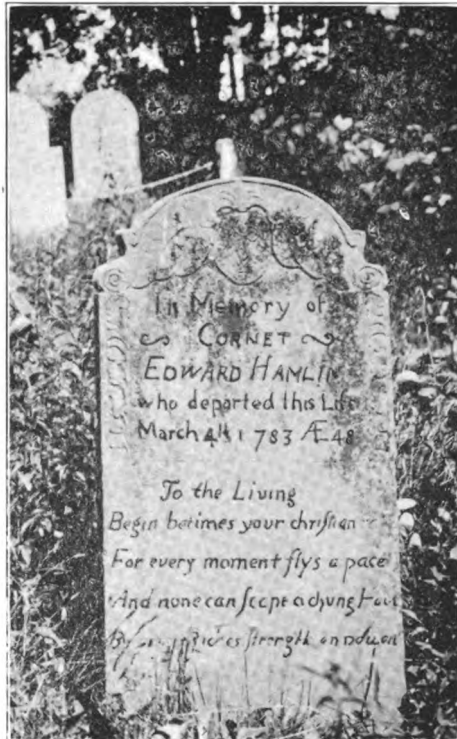 In Memory of
CORNET
EDWARD HAMLIN
who departed this Life
March 4th 1783 Æ 48
To the Living
Begin betimes your christian
For every moment flys a pace
And none can scape a dying hour
By strength